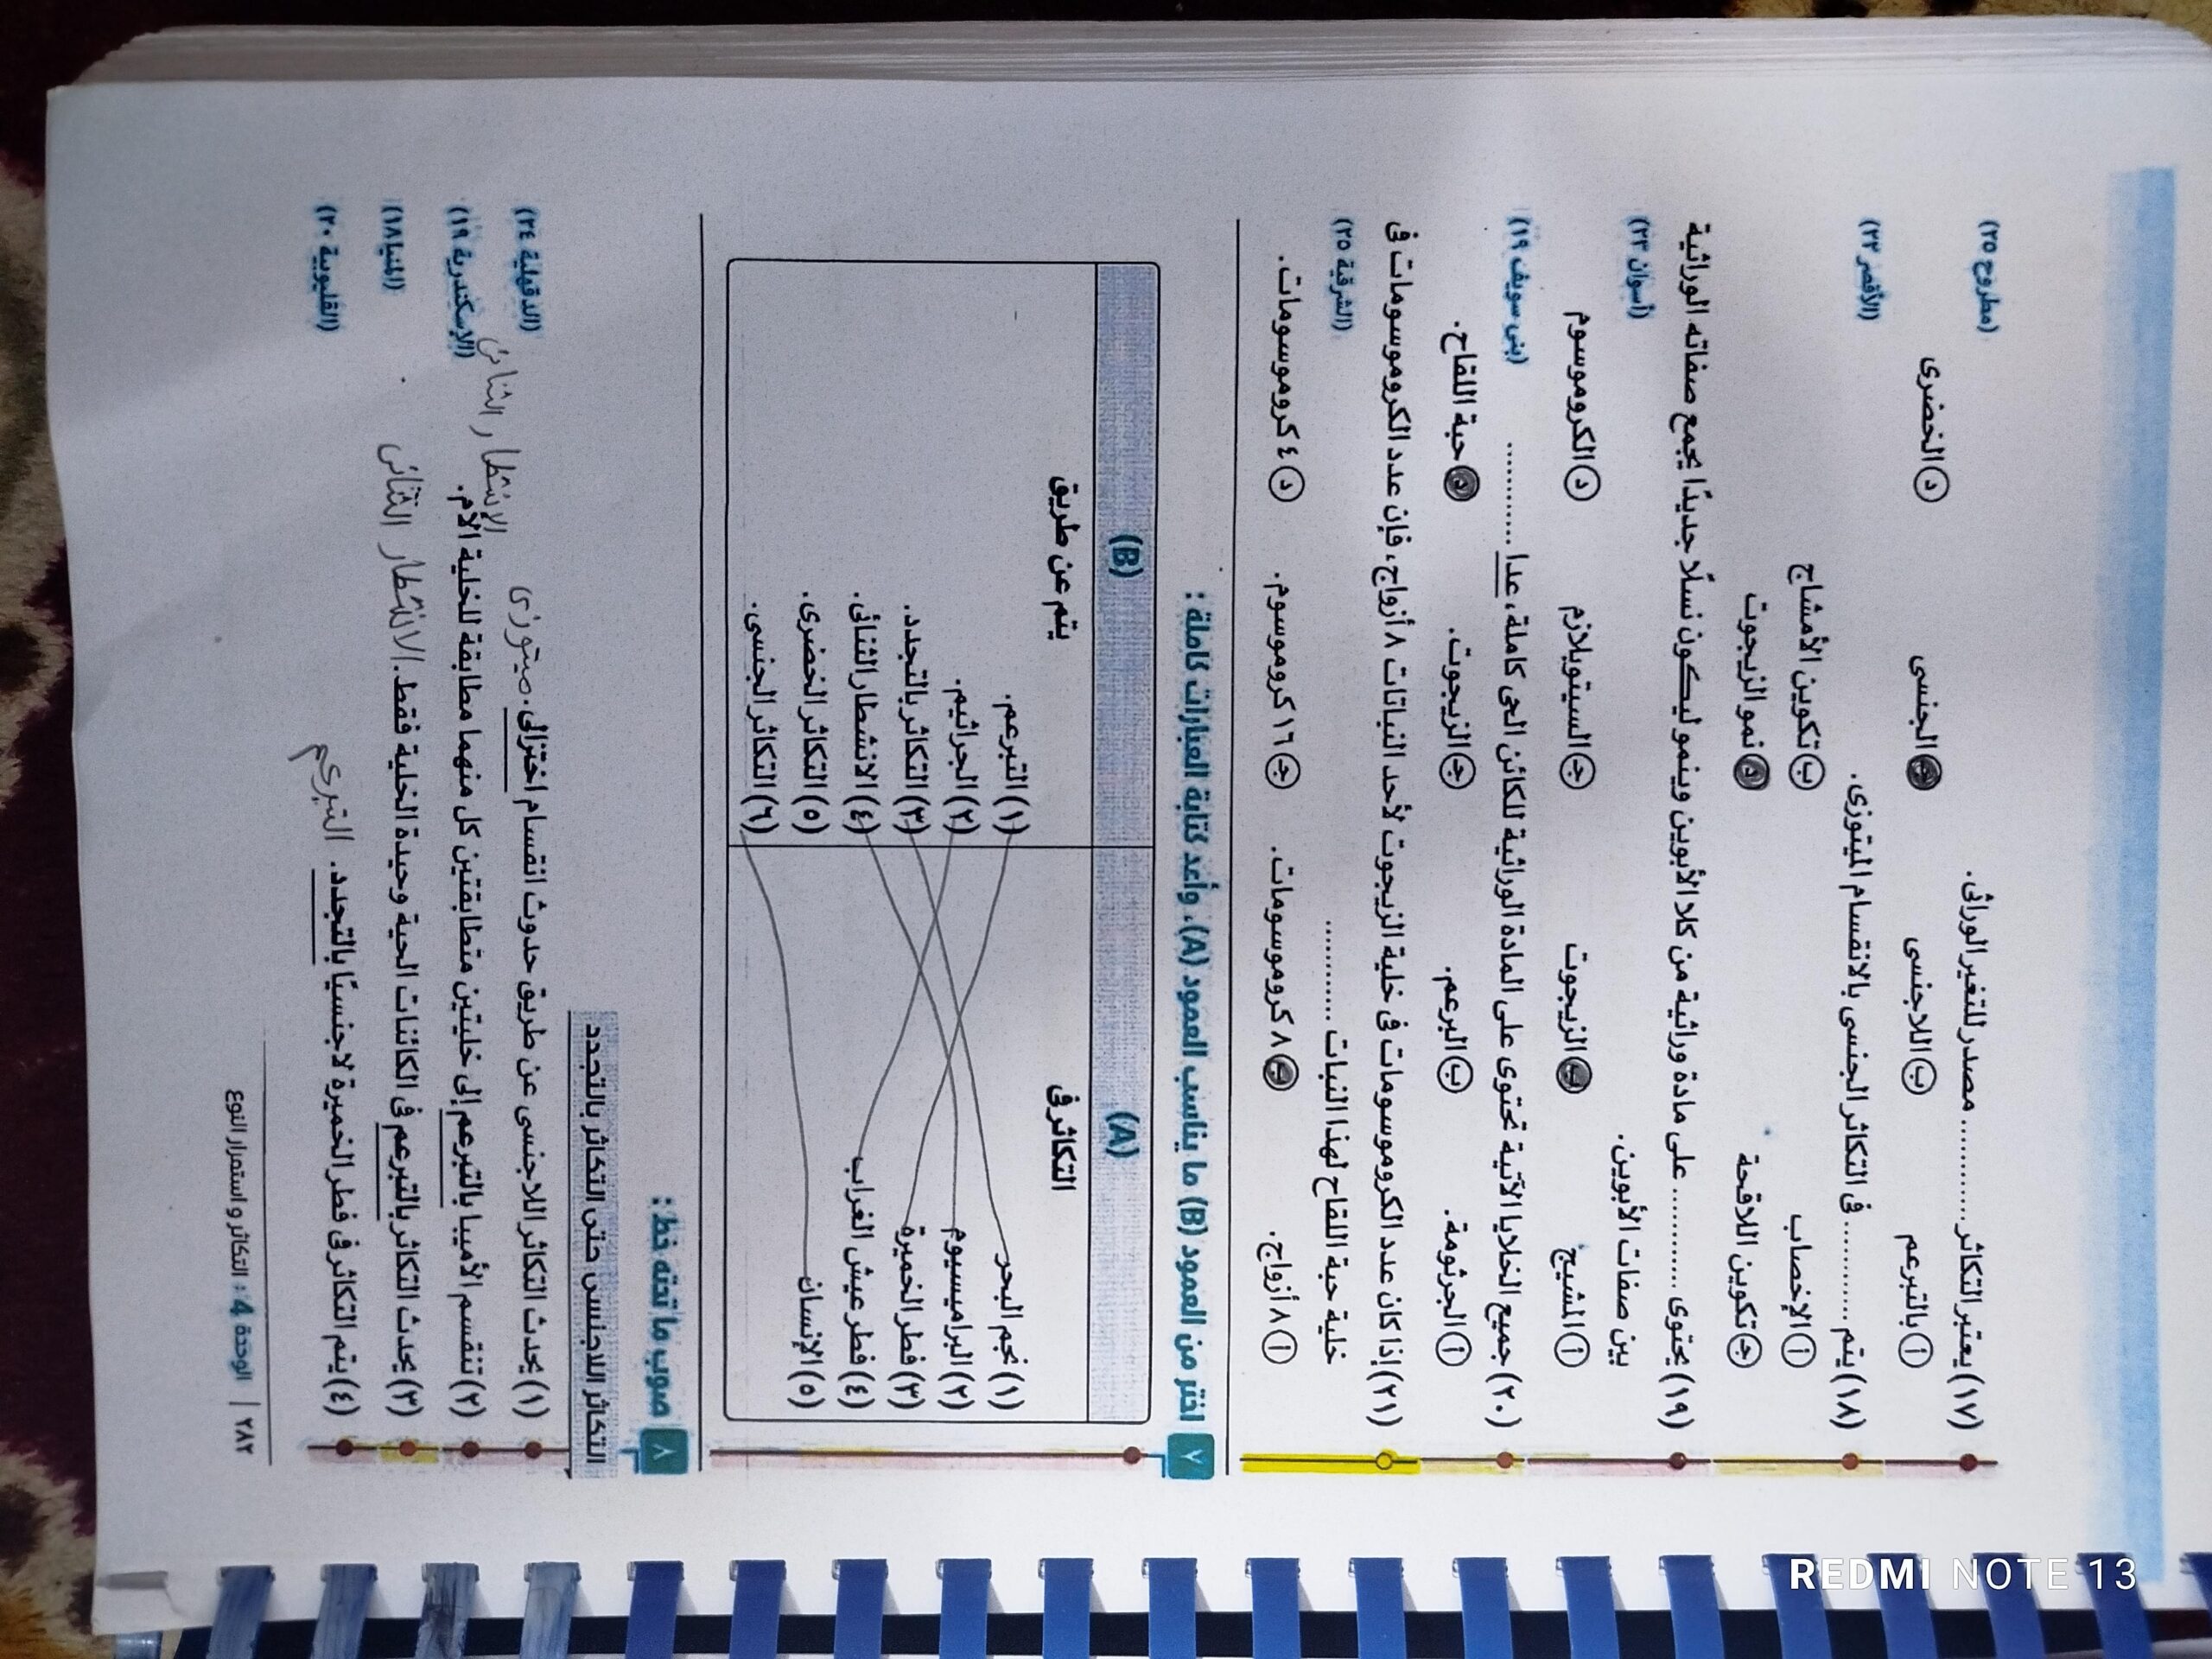 (١٧) يعتبر التكاثر ............ مصدر للتغير الوراثى. (مطروح ٢٥)
أ بالتبرعم ب اللاجنسى ج الجنسى د الخضرى
(١٨) يتم ............ فى التكاثر الجنسى بالانقسام الميتوزى. (الأقصر ٢٣)
أ الإخصاب ب تكوين الأمشاج
ج تكوين اللاقحة د نمو الزيجوت
(١٩) يحتوى ............ على مادة وراثية من كلا الأبوين وينمو ليكون نسلًا جديدًا يجمع صفاته الوراثية
بين صفات الأبوين. (أسوان ٢٣)
أ المشيج ب الزيجوت ج السيتوبلازم د الكروموسوم
(٢٠) جميع الخلايا الآتية تحتوى على المادة الوراثية للكائن الحى كاملة، عدا ............ (بنى سويف ١٩)
أ الجرثومة. ب البرعم. ج الزيجوت. د حبة اللقاح.
(٢١) إذا كان عدد الكروموسومات فى خلية الزيجوت لأحد النباتات ٨ أزواج، فإن عدد الكروموسومات فى
خلية حبة اللقاح لهذا النبات ............ (الشرقية ٢٥)
أ ٨ أزواج. ب ٨ كروموسومات. ج ١٦ كروموسوم. د ٤ كروموسومات.
٧ اختر من العمود (B) ما يناسب العمود (A)، وأعد كتابة العبارات كاملة :
(A) (B)
التكاثر فى يتم عن طريق
(١) نجم البحر (١) التبرعم.
(٢) البراميسيوم (٢) الجراثيم.
(٣) فطر الخميرة (٣) التكاثر بالتجدد.
(٤) فطر عيش الغراب (٤) الانشطار الثنائى.
(٥) الإنسان (٥) التكاثر الخضرى.
(٦) التكاثر الجنسى.
٨ صوب ما تحته خط :
التكاثر اللاجنسى حتى التكاثر بالتجدد
(١) يحدث التكاثر اللاجنسى عن طريق حدوث انقسام اختزالى. ميتوزى (الدقهلية ٢٤)
الإنشطار الثنائى
(٢) تنقسم الأميبا بالتبرعم إلى خليتين متطابقتين كل منهما مطابقة للخلية الأم. (الإسكندرية ١٩)
(٣) يحدث التكاثر بالتبرعم فى الكائنات الحية وحيدة الخلية فقط. الانشطار الثنائى (المنيا ١٨)
(٤) يتم التكاثر فى فطر الخميرة لاجنسيًا بالتجدد. التبرعم (القليوبية ٢٠)
٢٨٢ | الوحدة 4 : التكاثر و استمرار النوع
REDMI NOTE 13